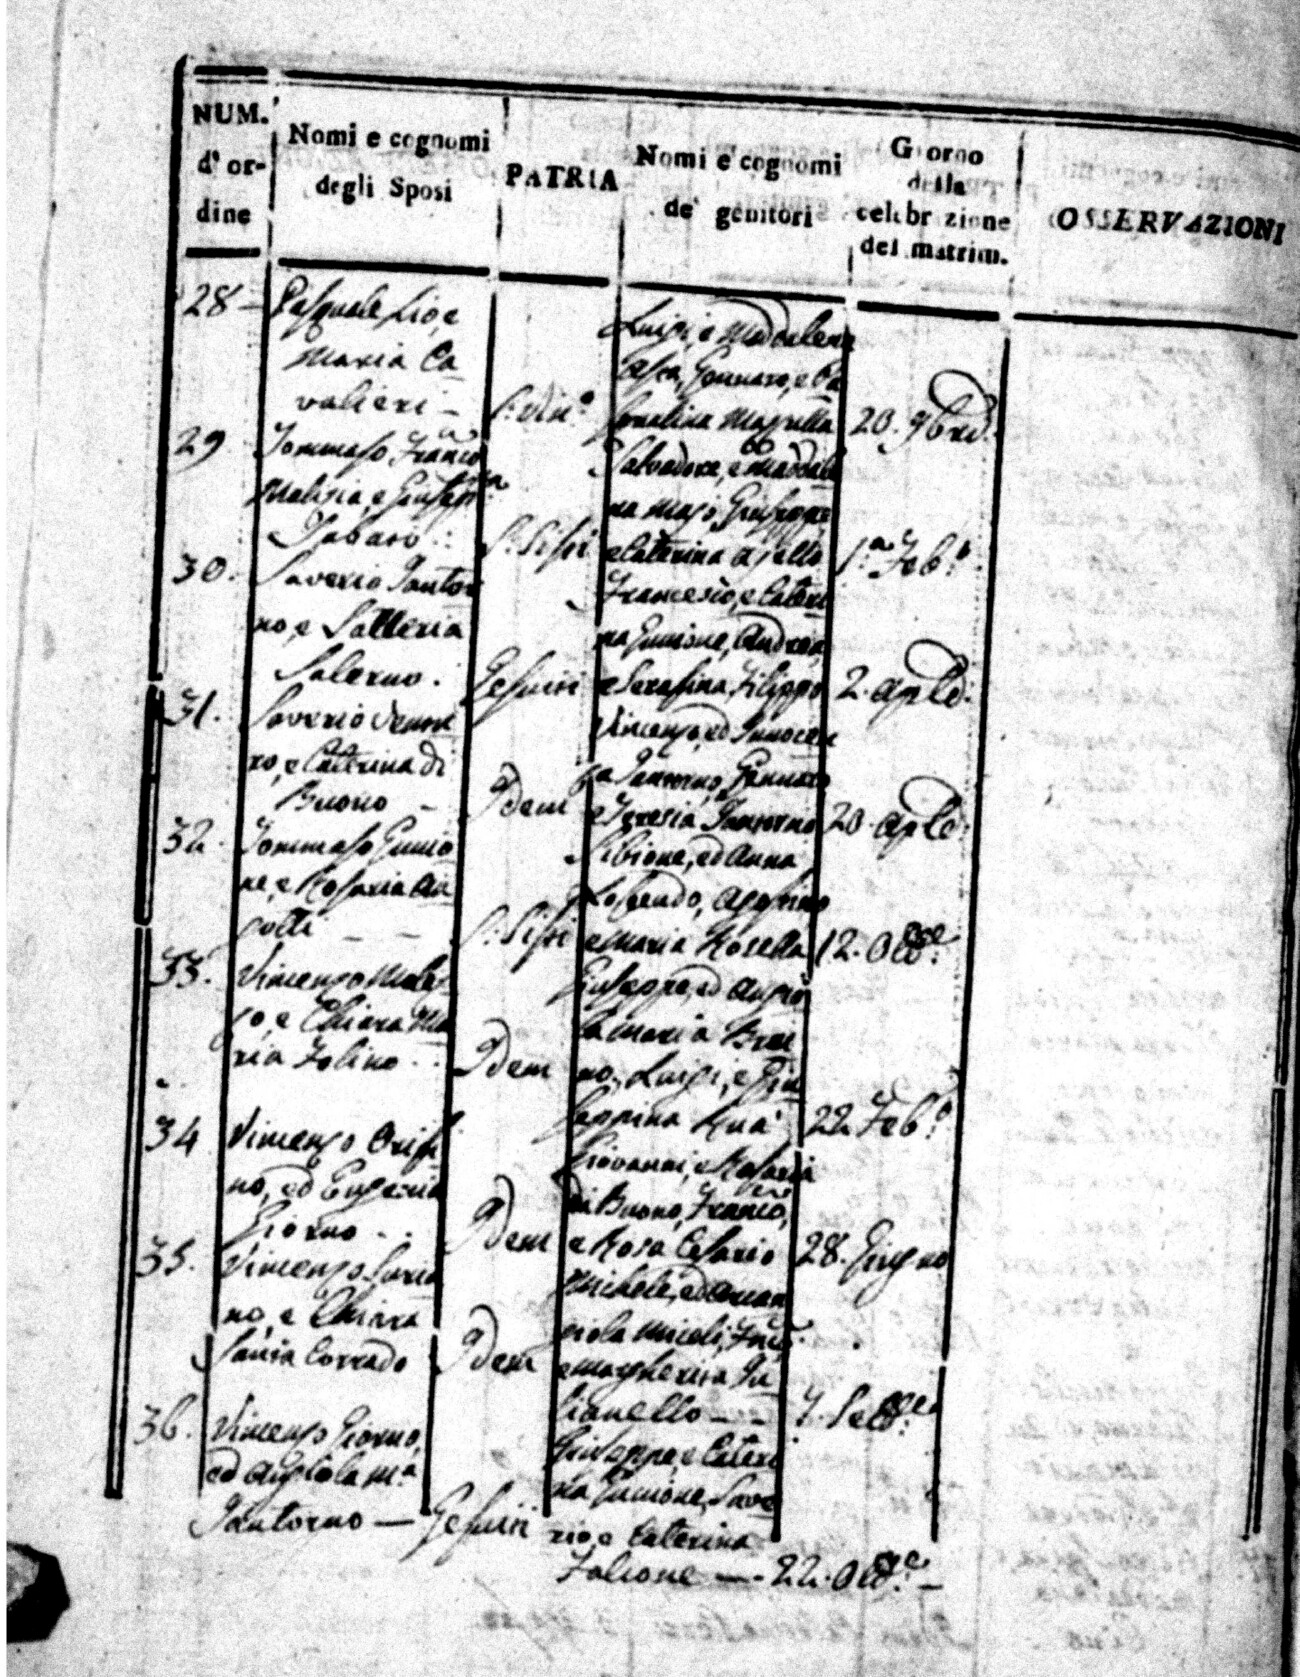 NUM. d' or- dine
Nomi e cognomi degli Sposi
PATRIA
Nomi e cognomi de' genitori
Giorno della celebrazione del matrim.
OSSERVAZIONI
28 Pasquale Lio, e
Maria Ca
valieri
Luigi, e Maddalena
Gennaro, e
20. 9bre
29 Tommaso Franc.o
Malizia, e Giusepp.na
Tabaro
S. Sisti
Salvadore, e Maddale
na Majo, Giuseppe
e Caterina Ajello
1.o Feb.o
30. Saverio Santor
no, e Letteria
Salerno.
Gesuiti
Francesco, e Cateri
na Gunione, Andrea,
e Serafina Filippo
2. aple.
31. Saverio
ro, e Caterina di
Buono
Idem
Vincenzo, ed Innocen
za Santorno, Gennaro
e Teresia Santorno
20. aple.
32. Tommaso Gunio
ne, e Rosaria
S. Sisti
ed Anna
Agostino
e Maria Rosella
12. Ott.e
33. Vincenzo
e Chiara Ma
ria Folino
Idem
Giuseppe, ed Angio
la Maria Brui
no, Luigi, e Giu
seppina Ruà
22 Feb.o
34 Vincenzo Crispi
no, ed Eugenia
Giorno
Idem
Giovanni, e Rosaria
di Buono, Franc.o,
e Rosa Cesario
28. Giugno
35. Vincenzo Soria
no, e Chiara
Corrado
Idem
Michele, ed Arcan
giola Miceli,
e Margherita Iu
lianello
7. Sett.e
36. Vincenzo Giorno,
ed Angiola M.a
Santorno
Gesuiti
Giuseppe, e Cateri
na Gunione, Save
rio, e Caterina
Falcone
22. Ott.e